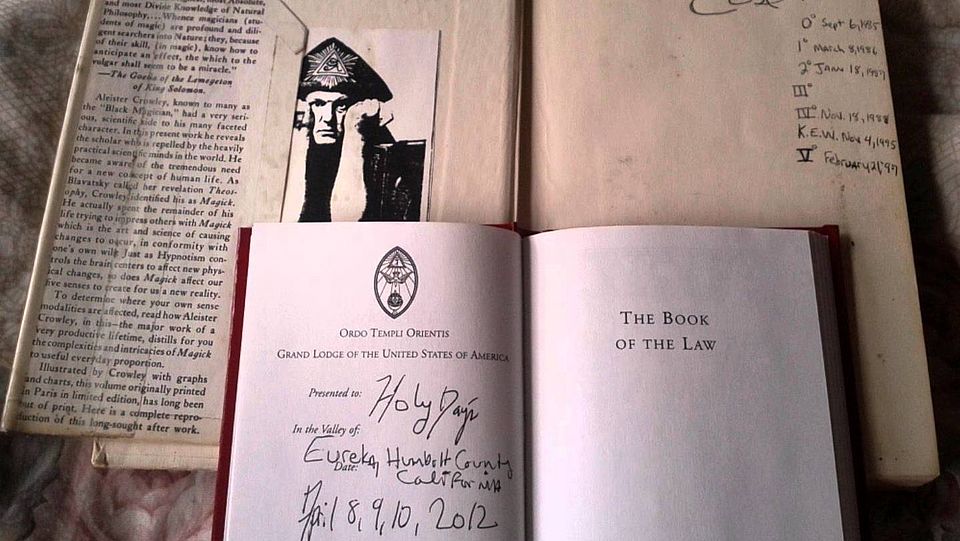 and most Divine Knowledge of Natural
Philosophy,...Whence magicians (stu-
dents of magic) are profound and dili-
gent searchers into Nature; they, because
of their skill, (in magic), know how to
anticipate an effect, the which to the
vulgar shall seem to be a miracle."
—The Goetia of the Lemegeton
of King Solomon.
Aleister Crowley, known to many as
the "Black Magician," had a very seri-
ous, scientific side to his many faceted
character. In this present work he reveals
the scholar who is repelled by the heavily
practical scientific minds in the world. He
became aware of the tremendous need
for a new concept of human life. As
Blavatsky called her revelation Theos-
ophy, Crowley identified his as Magick.
He actually spent the remainder of his
life trying to impress others with Magick
which is the art and science of causing
changes to occur, in conformity with
one's own will. Just as Hypnotism con-
trols the brain centers to affect new phys-
ical changes, so does Magick affect our
five senses to create for us a new reality.
To determine where your own sense
modalities are affected, read how Aleister
Crowley, in this—the major work of a
very productive lifetime, distills for you
the complexities and intricacies of Magick
to useful everyday proportion.
Illustrated by Crowley with graphs
and charts, this volume originally printed
in Paris in limited edition, has long been
out of print. Here is a complete repro-
duction of this long-sought after work.
0° Sept 6, 1985
1° March 8, 1986
2° Jan 18, 1987
III°
IV° Nov. 18, 1988
K.E.W. Nov 4, 1995
V° February 21, '97
Ordo Templi Orientis
Grand Lodge of the United States of America
Presented to: Holy Days
In the Valley of:
Eureka, Humbolt County
Date: California
April 8, 9, 10, 2012
The Book
of the Law